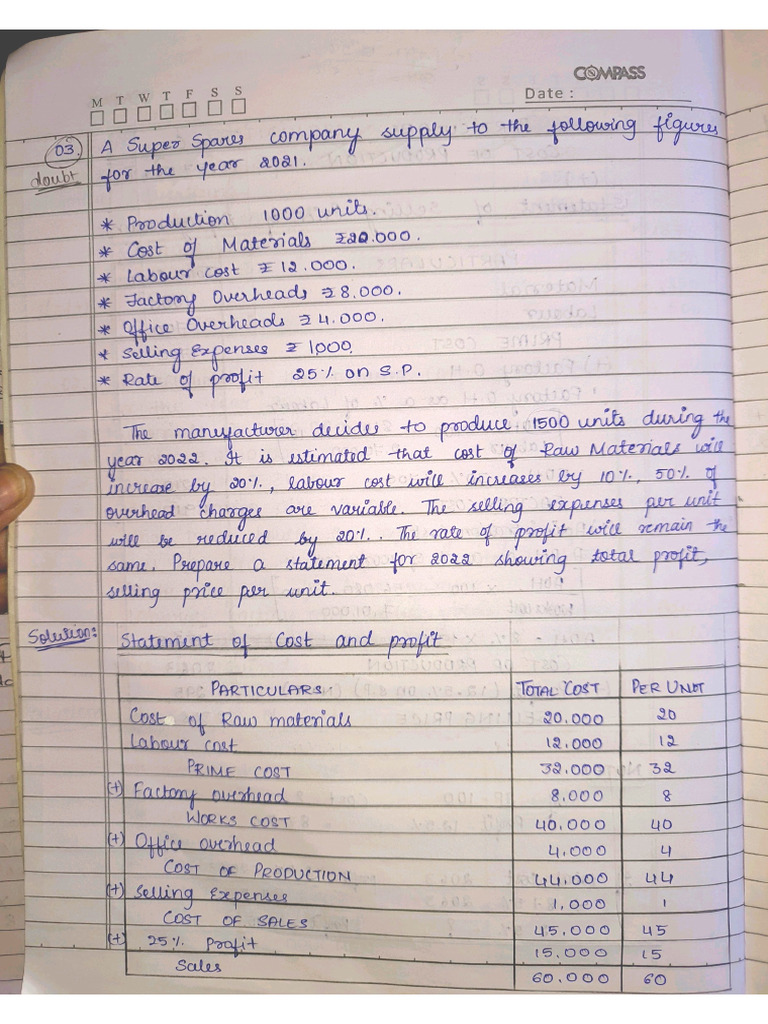 COMPASS
M T W T F S S
Date :
03. A Super Spares company supply to the following figures
doubt for the year 2021.
* Production 1000 units.
* Cost of Materials ₹20.000.
* Labour cost ₹ 12.000.
* Factory Overheads ₹ 8.000.
* Office Overheads ₹ 4.000.
* Selling Expenses ₹ 1,000.
* Rate of profit 25% on S.P.
The manufacturer decides to produce 1500 units during the
year 2022. It is estimated that cost of Raw Materials will
increase by 20%, labour cost will increases by 10%, 50% of
overhead charges are variable. The selling expenses per unit
will be reduced by 20%. The rate of profit will remain the
same. Prepare a statement for 2022 showing total profit,
selling price per unit.
Solution: Statement of Cost and profit
PARTICULARS TOTAL COST PER UNIT
Cost of Raw materials 20.000 20
Labour cost 12.000 12
PRIME COST 32.000 32
(+) Factory overhead 8.000 8
WORKS COST 40.000 40
(+) Office overhead 4.000 4
COST OF PRODUCTION 44.000 44
(+) Selling Expenses 1.000 1
COST OF SALES 45.000 45
(+) 25% Profit 15.000 15
Sales 60.000 60